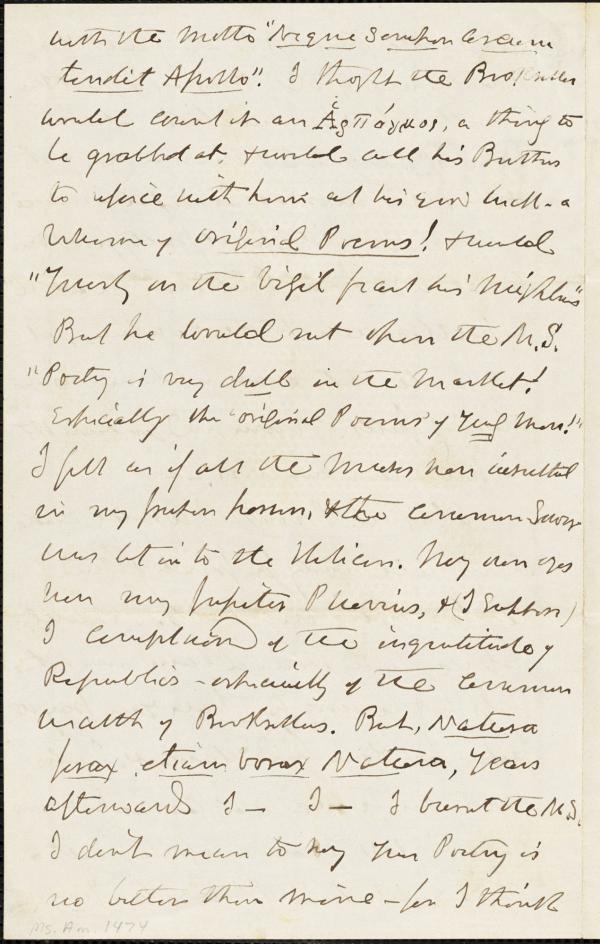 with the Motto "Neque Semper Arcum
tendit Apollo". I thought the Bookseller
would count it an Ἁρπάγμος, a thing to
be grabbed at, & would call his Brethren
to rejoice with him at his good luck - a
Volume of original Poems! & would
"Yearly on the vigil feast his neighbors"
But he would not open the M.S.
"Poetry is very dull in the Market!
Especially the 'original Poems' of Yung Men!"
I felt as if all the Muses were insulted
in my person, & the common Sewer
was let in to the Helicon. My own eyes
were my Jupiter Pluvius, & (I suppose)
I complained of the ingratitude of
Republics - especially of the Common
wealth of Booksellers. But, Natura
ferax, etiam vorax Natura, Years
afterwards I — I — I burnt the M.S.
I don't mean to say your Poetry is
no better than mine - for I think
Ms. Am. 1474